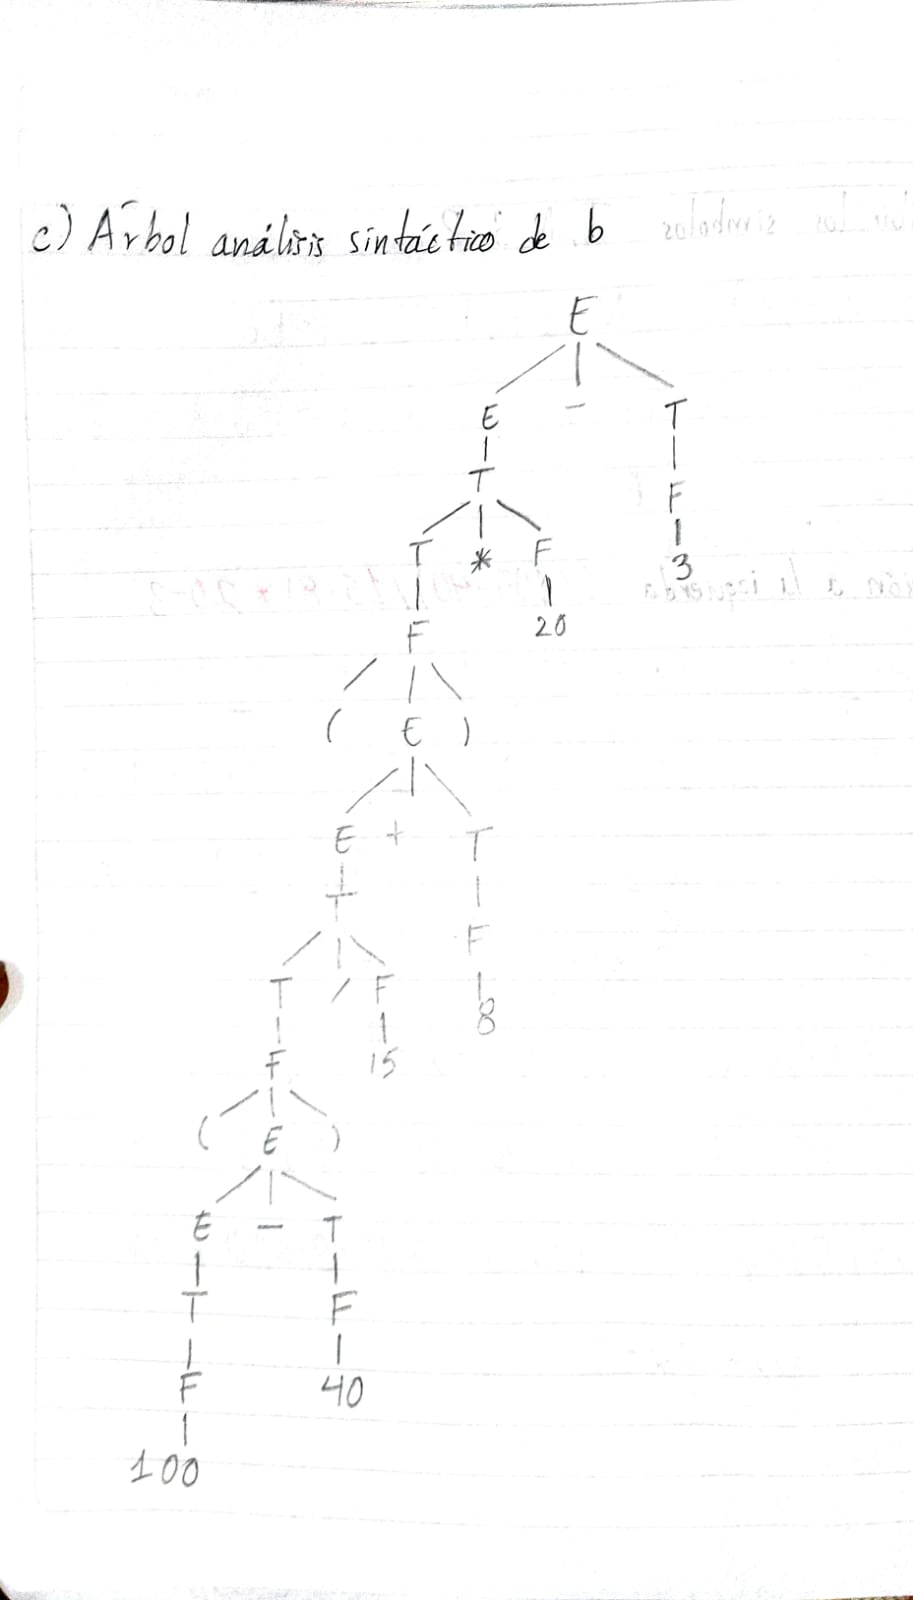 c) Árbol análisis sintáctico de b
E
E - T
T F
T * F 3
F 20
( E )
E + T
T F
T / F 8
F 15
( E )
E - T
T F
F 40
100